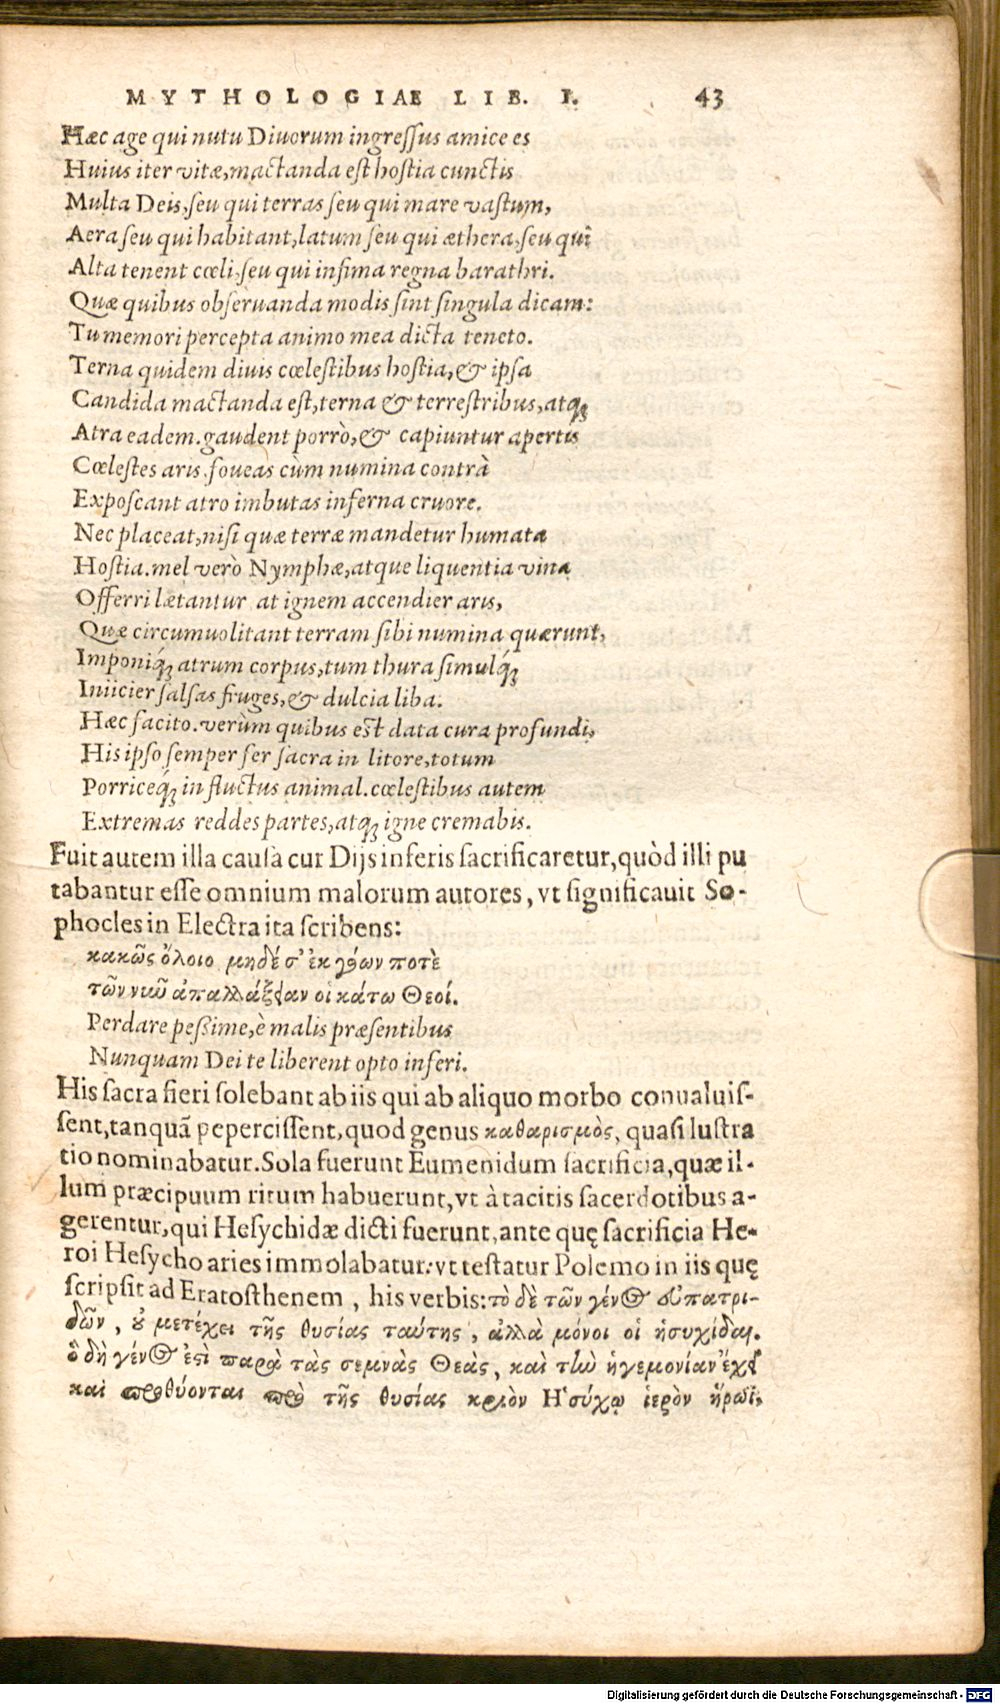 MYTHOLOGIAE LIB. I. 43
Hæc age qui nutu Diuorum ingreſſus amice es
Huius iter vitæ, mactanda eſt hoſtia cunctis
Multa Deis, ſeu qui terras ſeu qui mare vaſtum,
Aera ſeu qui habitant, latum ſeu qui æthera, ſeu qui
Alta tenent cœli, ſeu qui infima regna barathri.
Quæ quibus obſeruanda modis ſint ſingula dicam:
Tu memori percepta animo mea dicta teneto.
Terna quidem diuis cœleſtibus hoſtia, & ipſa
Candida mactanda eſt, terna & terreſtribus, atq;
Atra eadem. gaudent porrò, & capiuntur apertis
Cœleſtes aris. foueas cùm numina contrà
Expoſcant atro imbutas inferna cruore.
Nec placeat, niſi quæ terræ mandetur humata
Hoſtia. mel verò Nymphæ, atque liquentia vina
Offerri lætantur at ignem accendier aris,
Quæ circumuolitant terram ſibi numina quærunt,
Imponíq; atrum corpus, tum thura ſimulq́;
Iniicier ſalſas fruges, & dulcia liba.
Hæc facito. verùm quibus eſt data cura profundi,
His ipſo ſemper fer ſacra in litore, totum
Porriceq́; in fluctus animal. cœleſtibus autem
Extremas reddes partes, atq; igne cremabis.
Fuit autem illa cauſa cur Dijs inferis ſacrificaretur, quòd illi pu
tabantur eſſe omnium malorum autores, vt ſignificauit So-
phocles in Electra ita ſcribens:
κακῶς ὄλοιο μηδέ σ᾽ ἐκ γόων ποτὲ
τῶν νιῦ ἀπαλλάξειαν οἱ κάτω Θεοί.
Perdare peßime, è malis præſentibus
Nunquam Dei te liberent opto inferi.
His ſacra fieri ſolebant ab iis qui ab aliquo morbo conualuiſ-
ſent, tanquã peperciſſent, quod genus καθαρισμὸς, quaſi luſtra
tio nominabatur. Sola fuerunt Eumenidum ſacrificia, quæ il-
lum præcipuum ritum habuerunt, vt à tacitis ſacerdotibus a-
gerentur, qui Heſychidæ dicti fuerunt, ante quę ſacrificia He-
roi Heſycho aries immolabatur: vt teſtatur Polemo in iis quę
ſcripſit ad Eratoſthenem, his verbis: τὸ δὲ τῶν γένος εὐπατρι-
δῶν, οὐ μετέχει τῆς θυσίας ταύτης, ἀλλὰ μόνοι οἱ ἡσυχίδαι.
ὃ δὴ γένος ἐςὶ παρὰ τὰς σεμνὰς Θεὰς, καὶ τὴν ἡγεμονίαν ἔχει
καὶ προθύονται πρὸ τῆς θυσίας κριὸν Ἡσύχῳ ἱερὸν ἥρωϊ,
Digitalisierung gefördert durch die Deutsche Forschungsgemeinschaft - DFG